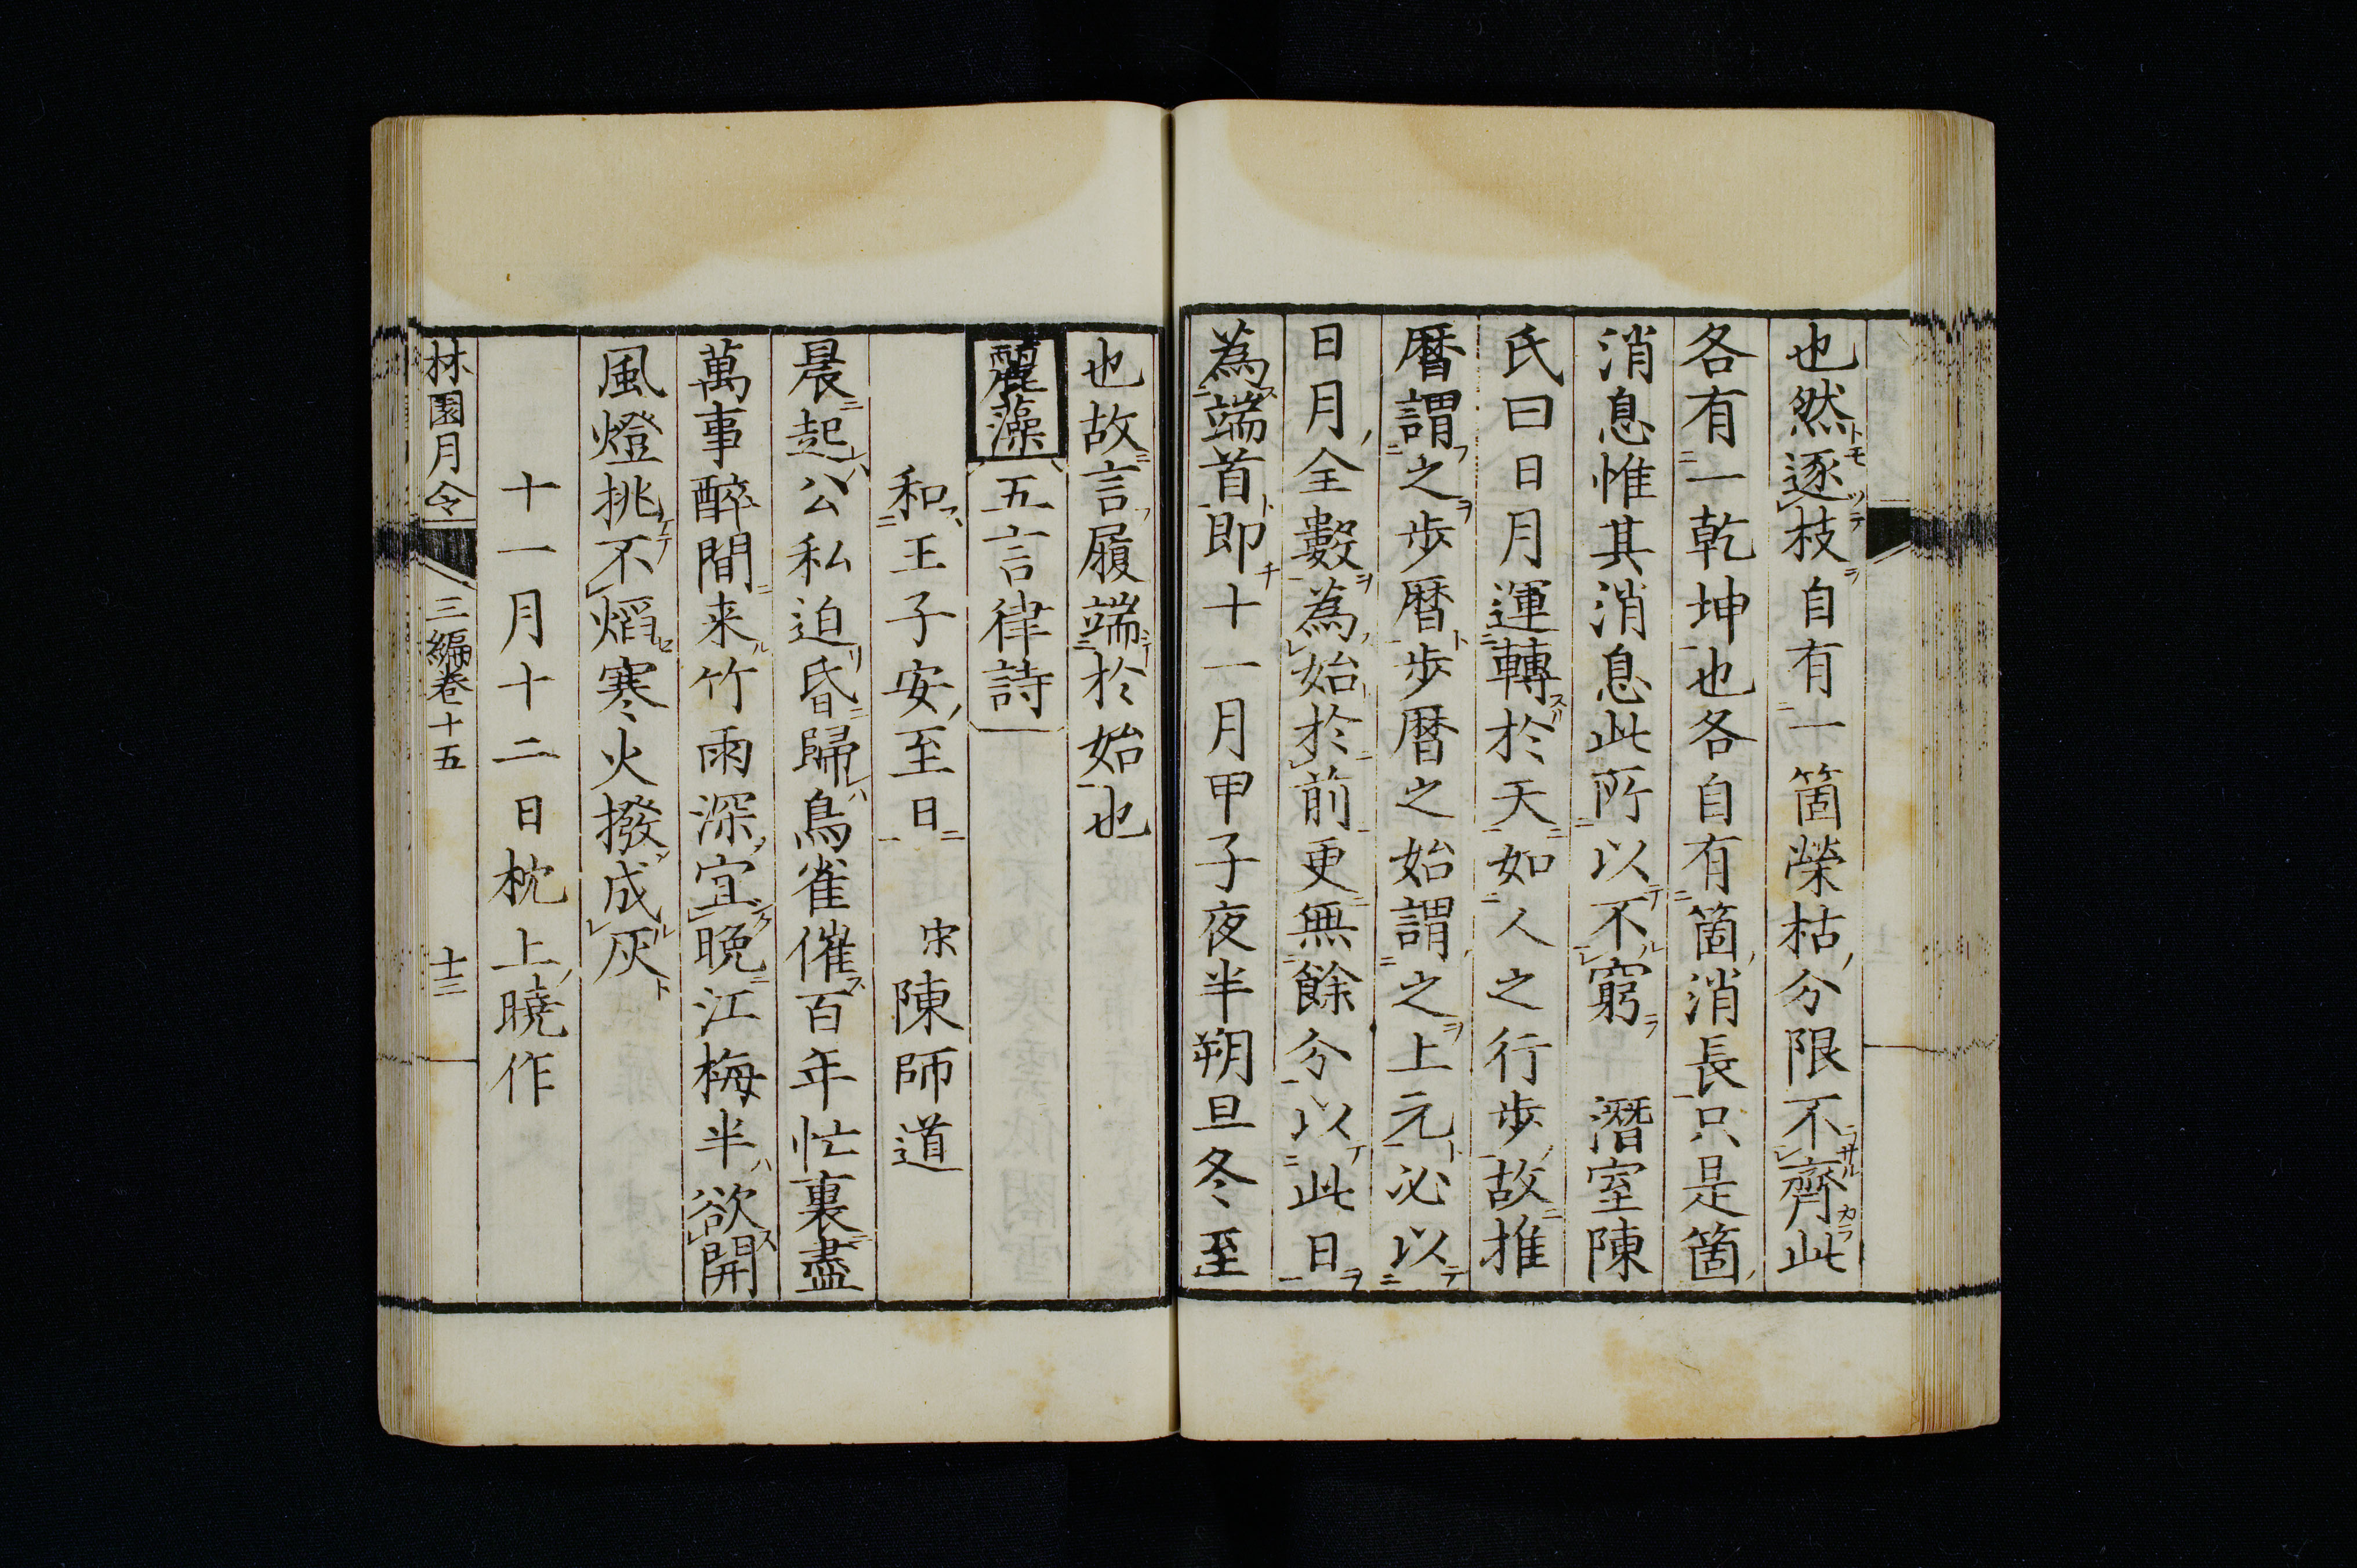 也然逐枝自有一箇榮枯分限不齊此
各有一乾坤也各自有箇消長只是箇
消息惟其消息此所以不窮　潛室陳
氏曰日月運轉於天如人之行步故推
暦謂之步暦步暦之始謂之上元必以
日月全數為始於前更無餘分以此日
為端首即十一月甲子夜半朔旦冬至
也故言履端於始也
麗藻　五言律詩
和王子安至日　宋陳師道
晨起公私迫昏歸鳥雀催百年忙裏盡
萬事醉間来竹雨深宜晩江梅半欲開
風燈挑不熖寒火撥成灰
十一月十二日枕上曉作
林園月令　三編卷十五　十三